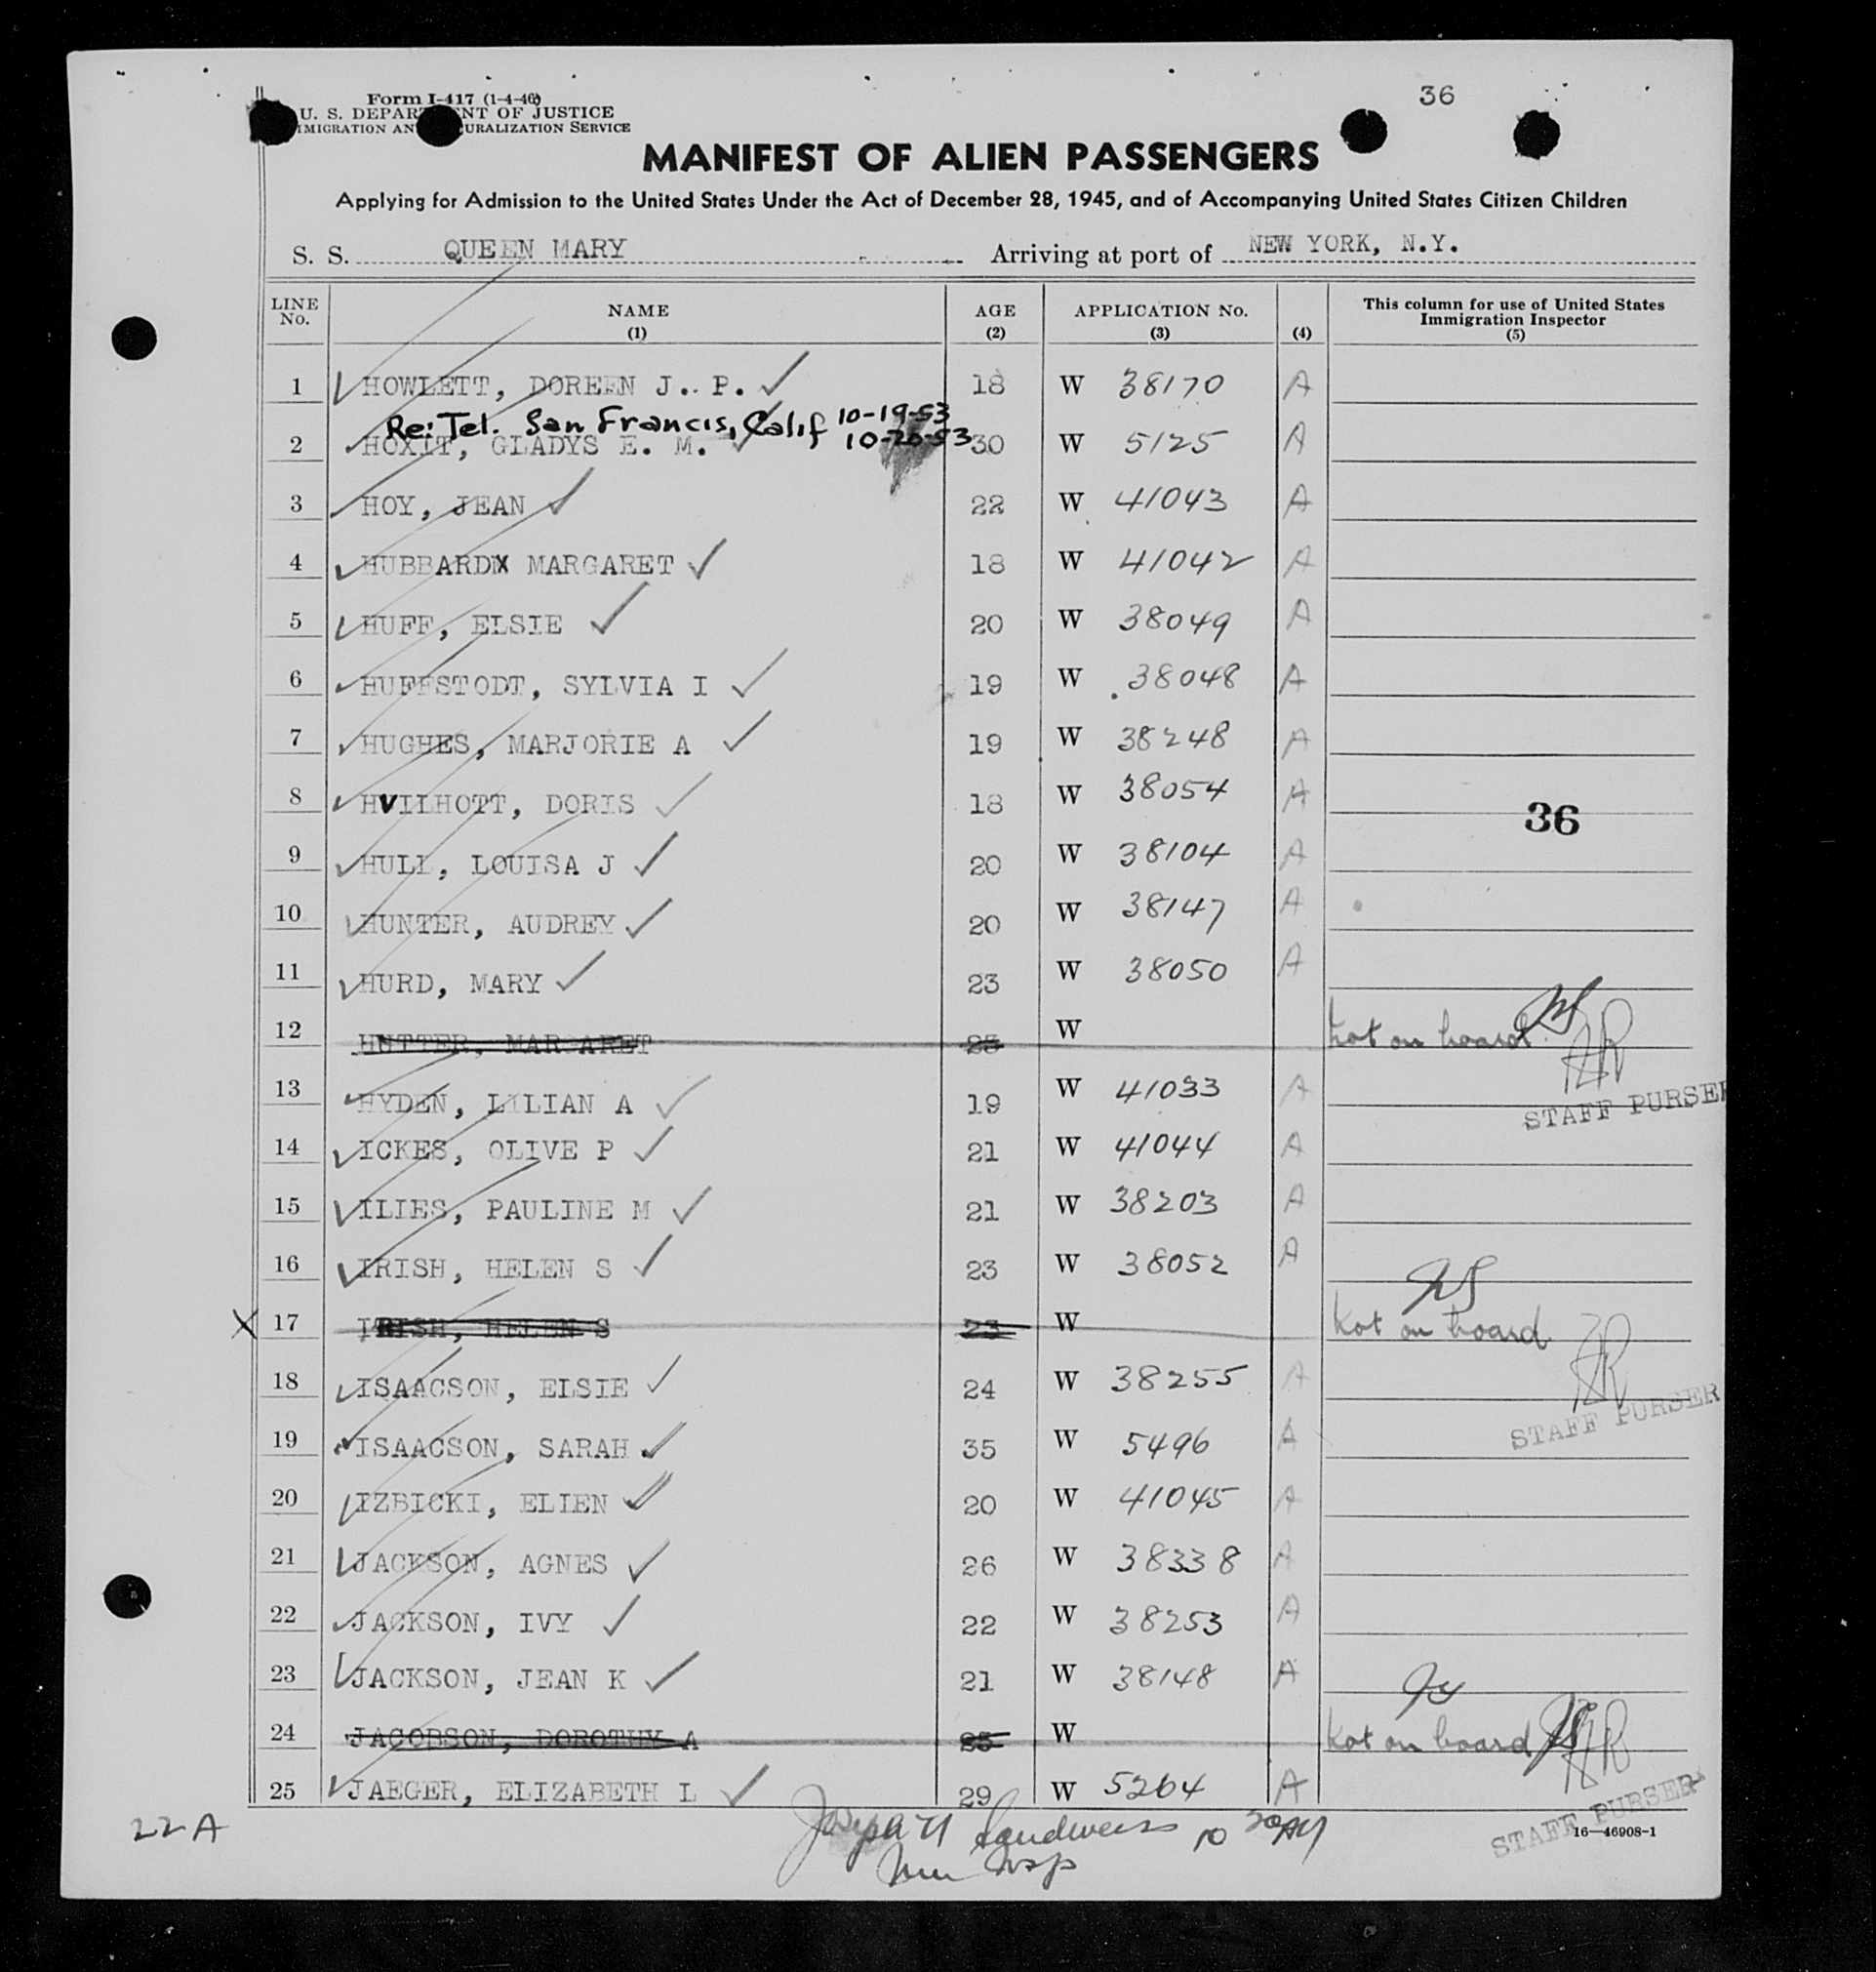 Form I-417 (1-4-46)
U. S. DEPARTMENT OF JUSTICE
IMIGRATION AN URALIZATION SERVICE
36
MANIFEST OF ALIEN PASSENGERS
Applying for Admission to the United States Under the Act of December 28, 1945, and of Accompanying United States Citizen Children
S. S. QUEEN MARY Arriving at port of NEW YORK, N.Y.
LINE No. NAME (1) AGE (2) APPLICATION No. (3) (4) This column for use of United States Immigration Inspector (5)
1 HOWLETT, DOREEN J. P. 18 W 38170 A
Re: Tel. San Francis, Calif 10-19-53
10-20-53
2 HOXIT, GLADYS E. M. 30 W 5125 A
3 HOY, JEAN 22 W 41043 A
4 HUBBARDX MARGARET 18 W 41042 A
5 HUFF, ELSIE 20 W 38049 A
6 HUFFSTODT, SYLVIA I 19 W 38048 A
7 HUGHES, MARJORIE A 19 W 38248 A
8 HVILHOTT, DORIS 18 W 38054 A
36
9 HULL, LOUISA J 20 W 38104 A
10 HUNTER, AUDREY 20 W 38147 A
11 HURD, MARY 23 W 38050 A
12 HUTTER, MARGARET 25 W Not on board
STAFF PURSER
13 HYDEN, LILIAN A 19 W 41033 A
14 ICKES, OLIVE P 21 W 41044 A
15 ILIES, PAULINE M 21 W 38203 A
16 IRISH, HELEN S 23 W 38052 A
X 17 IRISH, HELEN S 23 W Not on board
18 ISAACSON, ELSIE 24 W 38255 A
STAFF PURSER
19 ISAACSON, SARAH 35 W 5496 A
20 IZBICKI, ELLEN 20 W 41045 A
21 JACKSON, AGNES 26 W 38338 A
22 JACKSON, IVY 22 W 38253 A
23 JACKSON, JEAN K 21 W 38148 A
24 JACOBSON, DOROTHY A 25 W Not on board
25 JAEGER, ELIZABETH L 29 W 5264 A
STAFF PURSER
22A
16—46908-1